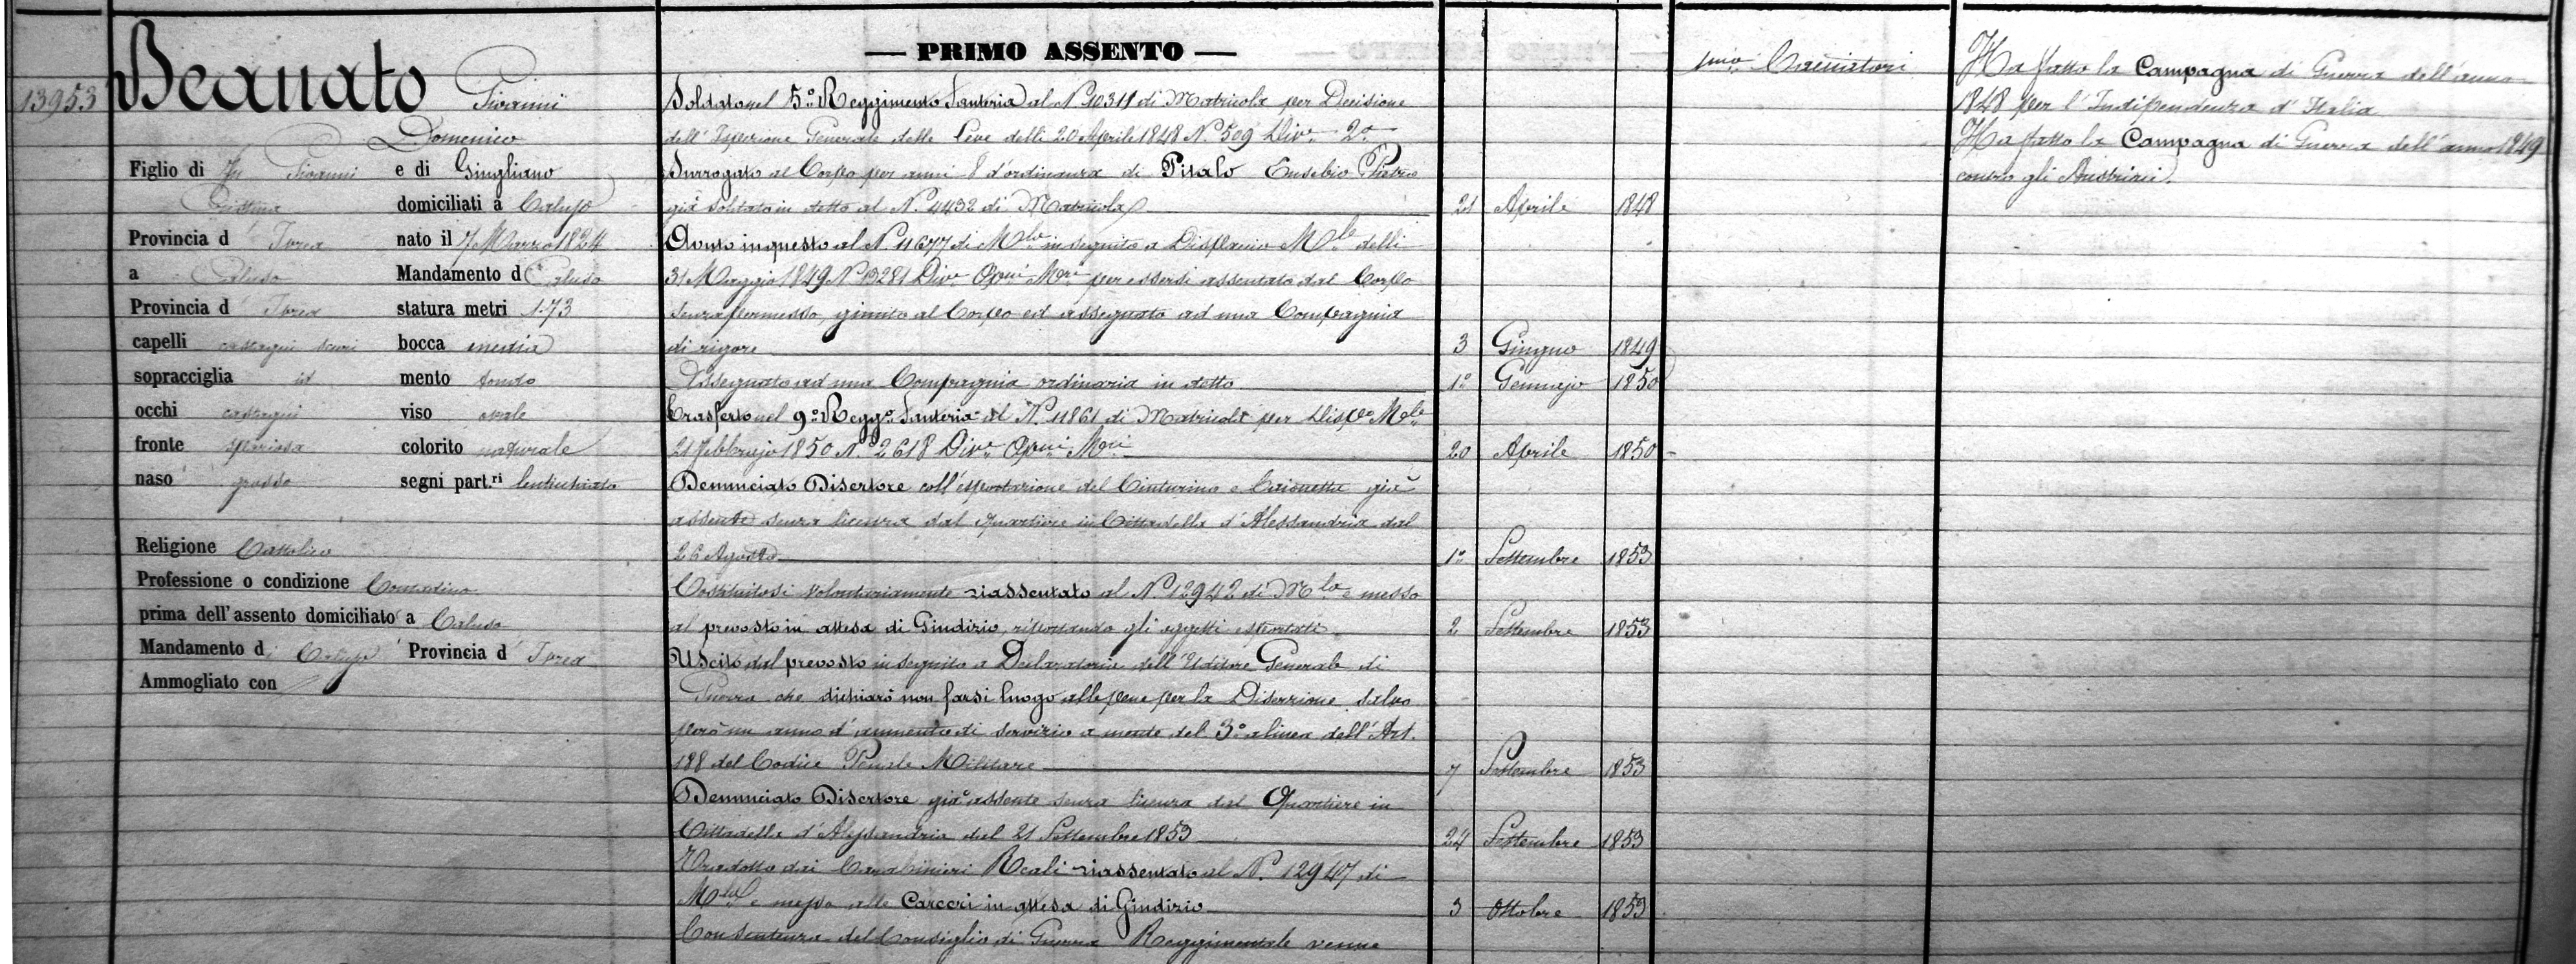 — PRIMO ASSENTO —
13953 Beauato Giovanni
Domenico
Figlio di fu Giovanni e di Gingliano
Cristina domiciliati a Caluso
Provincia d' Ivrea nato il 7 Marzo 1824
a Caluso Mandamento di Caluso
Provincia d' Ivrea statura metri 1.73
capelli castagni scuri bocca media
sopracciglia id mento tondo
occhi castagni viso ovale
fronte spaziosa colorito naturale
naso grosso segni part.ri lenticchiato
Religione Cattolica
Professione o condizione Contadino
prima dell'assento domiciliato a Caluso
Mandamento di Caluso Provincia d' Ivrea
Ammogliato con
Soldato nel 5º Reggimento Fanteria al Nº 10311 di Matricola per Decisione
dell' Ispezione Generale delle Leve delli 20 Aprile 1848 Nº 509 Div.e 2.a
Surrogato al Corpo per anni 8 d'ordinanza di Pitalo Eusebio Pietro
già soldato in detto al Nº 4432 di Matricola 21 Aprile 1848
Avuto in questo al Nº 11677 di M.la in seguito a Dispaccio M.le delli
31 Maggio 1849 Nº 13281 Div.e Op.ni M.ri per essersi assentato dal Corpo
senza permesso, giunto al Corpo ed assegnato ad una Compagnia
di rigore 3 Giugno 1849
Assegnato ad una Compagnia ordinaria in detto 1º Gennajo 1850
Trasferto nel 9º Regg.º Fanteria al Nº 11861 di Matricola per Disp.º M.le
21 Febbrajo 1850 Nº 2618 Div.e Op.ni M.ri 20 Aprile 1850
Denunciato Disertore coll'esportazione del Cinturino e Baionetta già
assente senza licenza dal Quartiere in Cittadella d'Alessandria dal
26 Agosto 1º Settembre 1853
Costituitosi volontariamente riassentato al Nº 12942 di M.la e messo
al prevosto in attesa di Giudizio, riportando gli oggetti esportati 2 Settembre 1853
Uscito dal prevosto in seguito a Declaratoria dell'Uditore Generale di
Guerra che dichiarò non farsi luogo alle pene per la Diserzione, salvo
però un anno d'aumento di servizio a mente del 3º alinea dell'Art.
188 del Codice Penale Militare 7 Settembre 1853
Denunciato Disertore già assente senza licenza dal Quartiere in
Cittadella d'Alessandria dal 21 Settembre 1853 24 Settembre 1853
Tradotto dai Carabinieri Reali riassentato al Nº 12947 di
M.la e messo alle Carceri in attesa di Giudizio 3 Ottobre 1853
Con Sentenza del Consiglio di Guerra Reggimentale venne
1mo Cacciatori
Ha fatto la Campagna di Guerra dell'anno
1848 per l'Indipendenza d'Italia
Ha fatto la Campagna di Guerra dell'anno 1849
contro gli Austriaci.